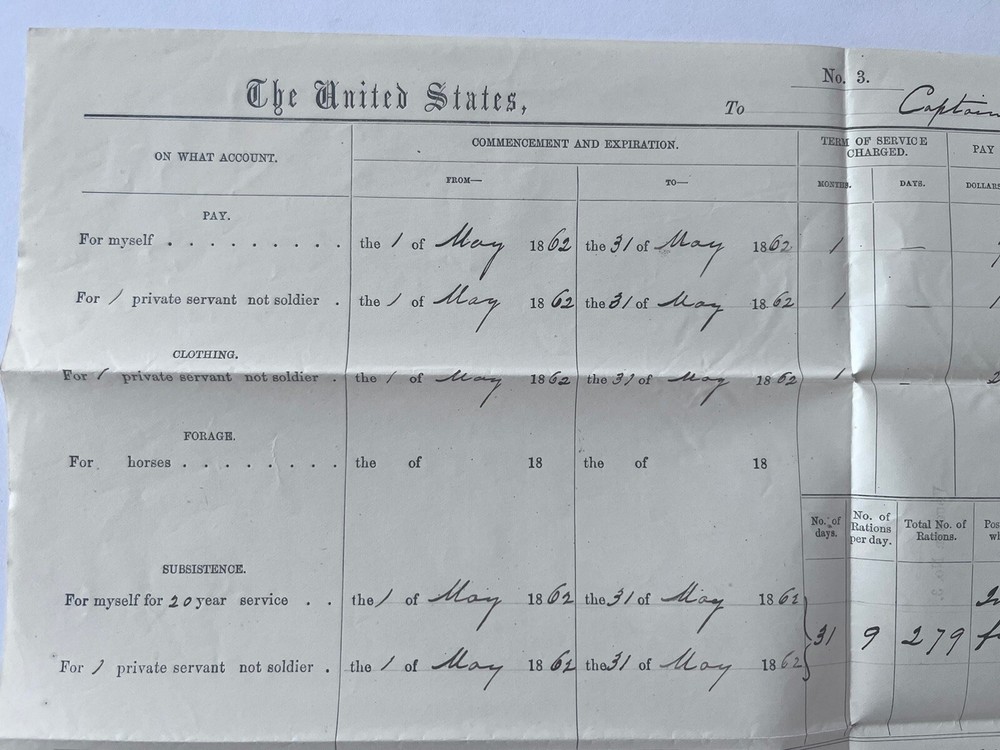 No. 3.
The United States, To Captain
ON WHAT ACCOUNT. COMMENCEMENT AND EXPIRATION. TERM OF SERVICE CHARGED. PAY
FROM— TO— MONTHS. DAYS. DOLLARS
PAY.
For myself . . . . . . . . . the 1 of May 1862 the 31 of May 1862 1 —
For 1 private servant not soldier . the 1 of May 1862 the 31 of May 1862 1 —
CLOTHING.
For 1 private servant not soldier . the 1 of May 1862 the 31 of May 1862 1 — 2
FORAGE.
For horses . . . . . . . . the of 18 the of 18
No. of days. No. of Rations per day. Total No. of Rations.
SUBSISTENCE.
For myself for 20 year service . . the 1 of May 1862 the 31 of May 1862
31 9 279
For 1 private servant not soldier . the 1 of May 1862 the 31 of May 1862